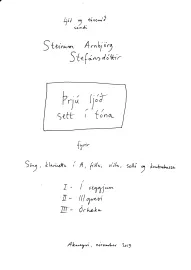 Lög og tónsmíð
Steinunn Arnbjörg
Stefánsdóttir
Þrjú ljóð
sett í tóna
fyrir
Söng, klarinettu í A, fiðlu, víólu, selló og kontrabassa
I - Í
II - Illgresi
III -
Akureyri, nóvember 2019